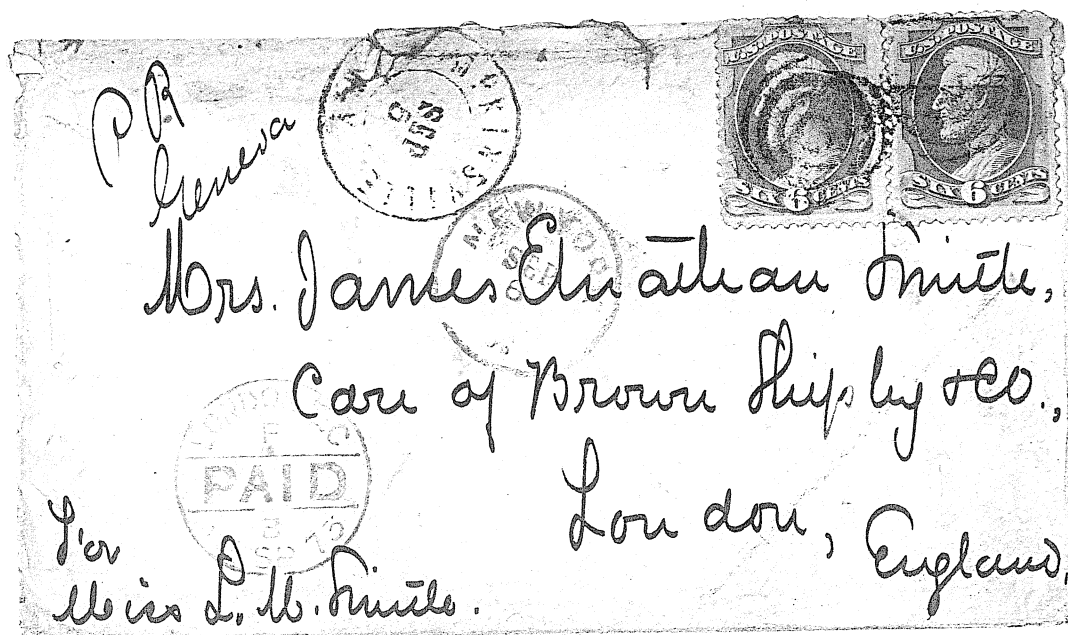 P. P.
Geneva
SEP
5
U.S. POSTAGE
SIX 6 CENTS
U.S. POSTAGE
SIX 6 CENTS
NEW YO
SEP
Mrs. James Elnathan Smith,
Care of Brown Shipley & Co.,
PAID
London,
England,
For
Miss L. M. Smith.